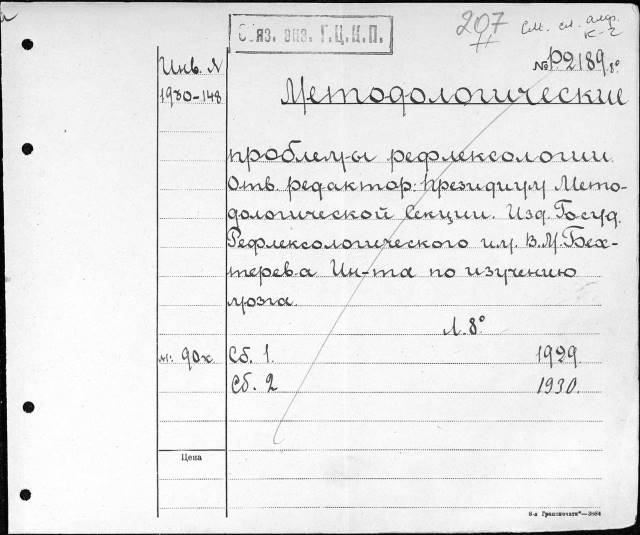 Обяз. экз. Г.Ц.К.П.
207
См. сл. алф.
К-2
Инв. №
1930-148
№ Р.2189.8°
Методологические
проблемы рефлексологии.
Отв. редактор: Президиум Мето-
дологической Секции. Изд. Госуд.
Рефлексологического им. В.М. Бех-
терева Ин-та по изучению
мозга.
Л. 8°
м: 90к.
Сб. 1. 1929
Сб. 2 1930.
Цена
6-я Гранпечати"—3684